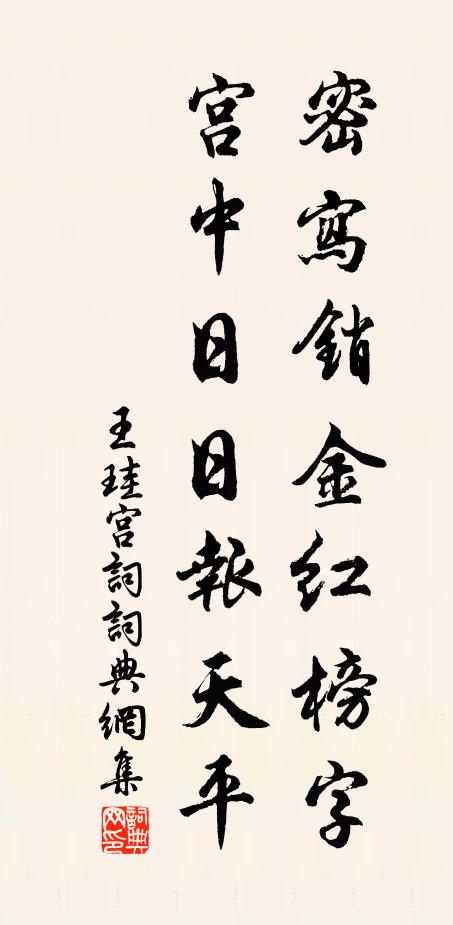 密寫銷金紅榜字
宮中日日報天平
王珪宮詞詞典網集
詞典網印